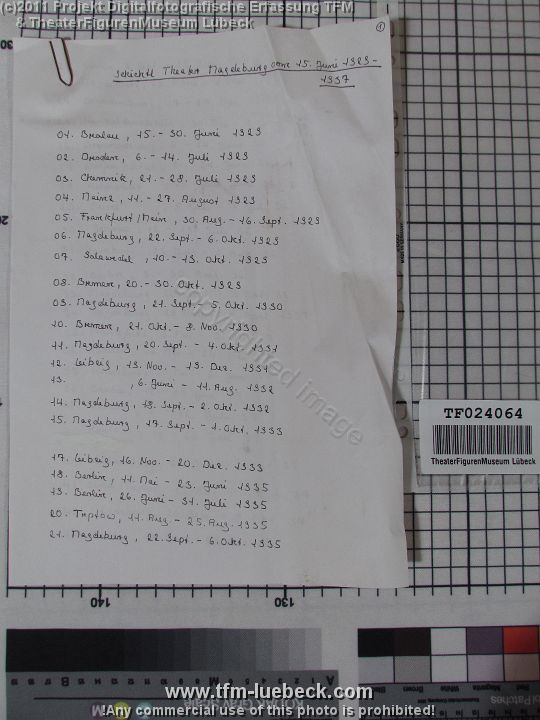 (c)2011 Projekt Digitalfotografische Erfassung TFM
& TheaterFigurenMuseum Lübeck
1
Schichtl Theater Magdeburg vom 15. Juni 1929 -
1937
01. Breslau, 15. - 30. Juni 1929
02. Dresden, 6. - 14. Juli 1929
03. Chemnitz, 21. - 28. Juli 1929
04. Mainz, 11. - 27. August 1929
05. Frankfurt/Main, 30. Aug. - 16. Sept. 1929
06. Magdeburg, 22. Sept. - 6. Okt. 1929
07. Salzwedel, 10. - 13. Okt. 1929
08. Bremen, 20. - 30. Okt. 1929
09. Magdeburg, 21. Sept. - 5. Okt. 1930
10. Bremen, 21. Okt. - 8. Nov. 1930
11. Magdeburg, 20. Sept. - 4. Okt. 1931
12. Leipzig, 13. Nov. - 13. Dez. 1931
13. , 6. Juni - 11. Aug. 1932
14. Magdeburg, 18. Sept. - 2. Okt. 1932
15. Magdeburg, 17. Sept. - 1. Okt. 1933
17. Leipzig, 16. Nov. - 20. Dez. 1933
18. Berlin, 11. Mai - 23. Juni 1935
19. Berlin, 26. Juni - 31. Juli 1935
20. Treptow, 11. Aug. - 25. Aug. 1935
21. Magdeburg, 22. Sept. - 6. Okt. 1935
copyrighted image
TF024064
TheaterFigurenMuseum Lübeck
130
20
140
130
www.tfm-luebeck.com
!Any commercial use of this photo is prohibited!